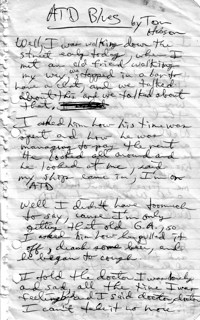 ATD Blues
by Tom
Hobson
Well, I was walking down the
street early today, when I
met an old friend walking
my way, we stopped in a bar to
have a chat, and we talked
about this and we talked about
that,
I asked him how his time was
spent and how he was
managing to pay the rent
He looked all around and
he looked at me, said
my ship came in, I'm on
ATD
Well I didn't have too much
to say, cause I'm only
getting that old G.A., so
I asked him how he pulled it
off, I drank some beer, and
he began to cough
I told the doctor I was lonely
and sad, all the time I was
feeling bad I said doctor, doctor
I can't take it no more